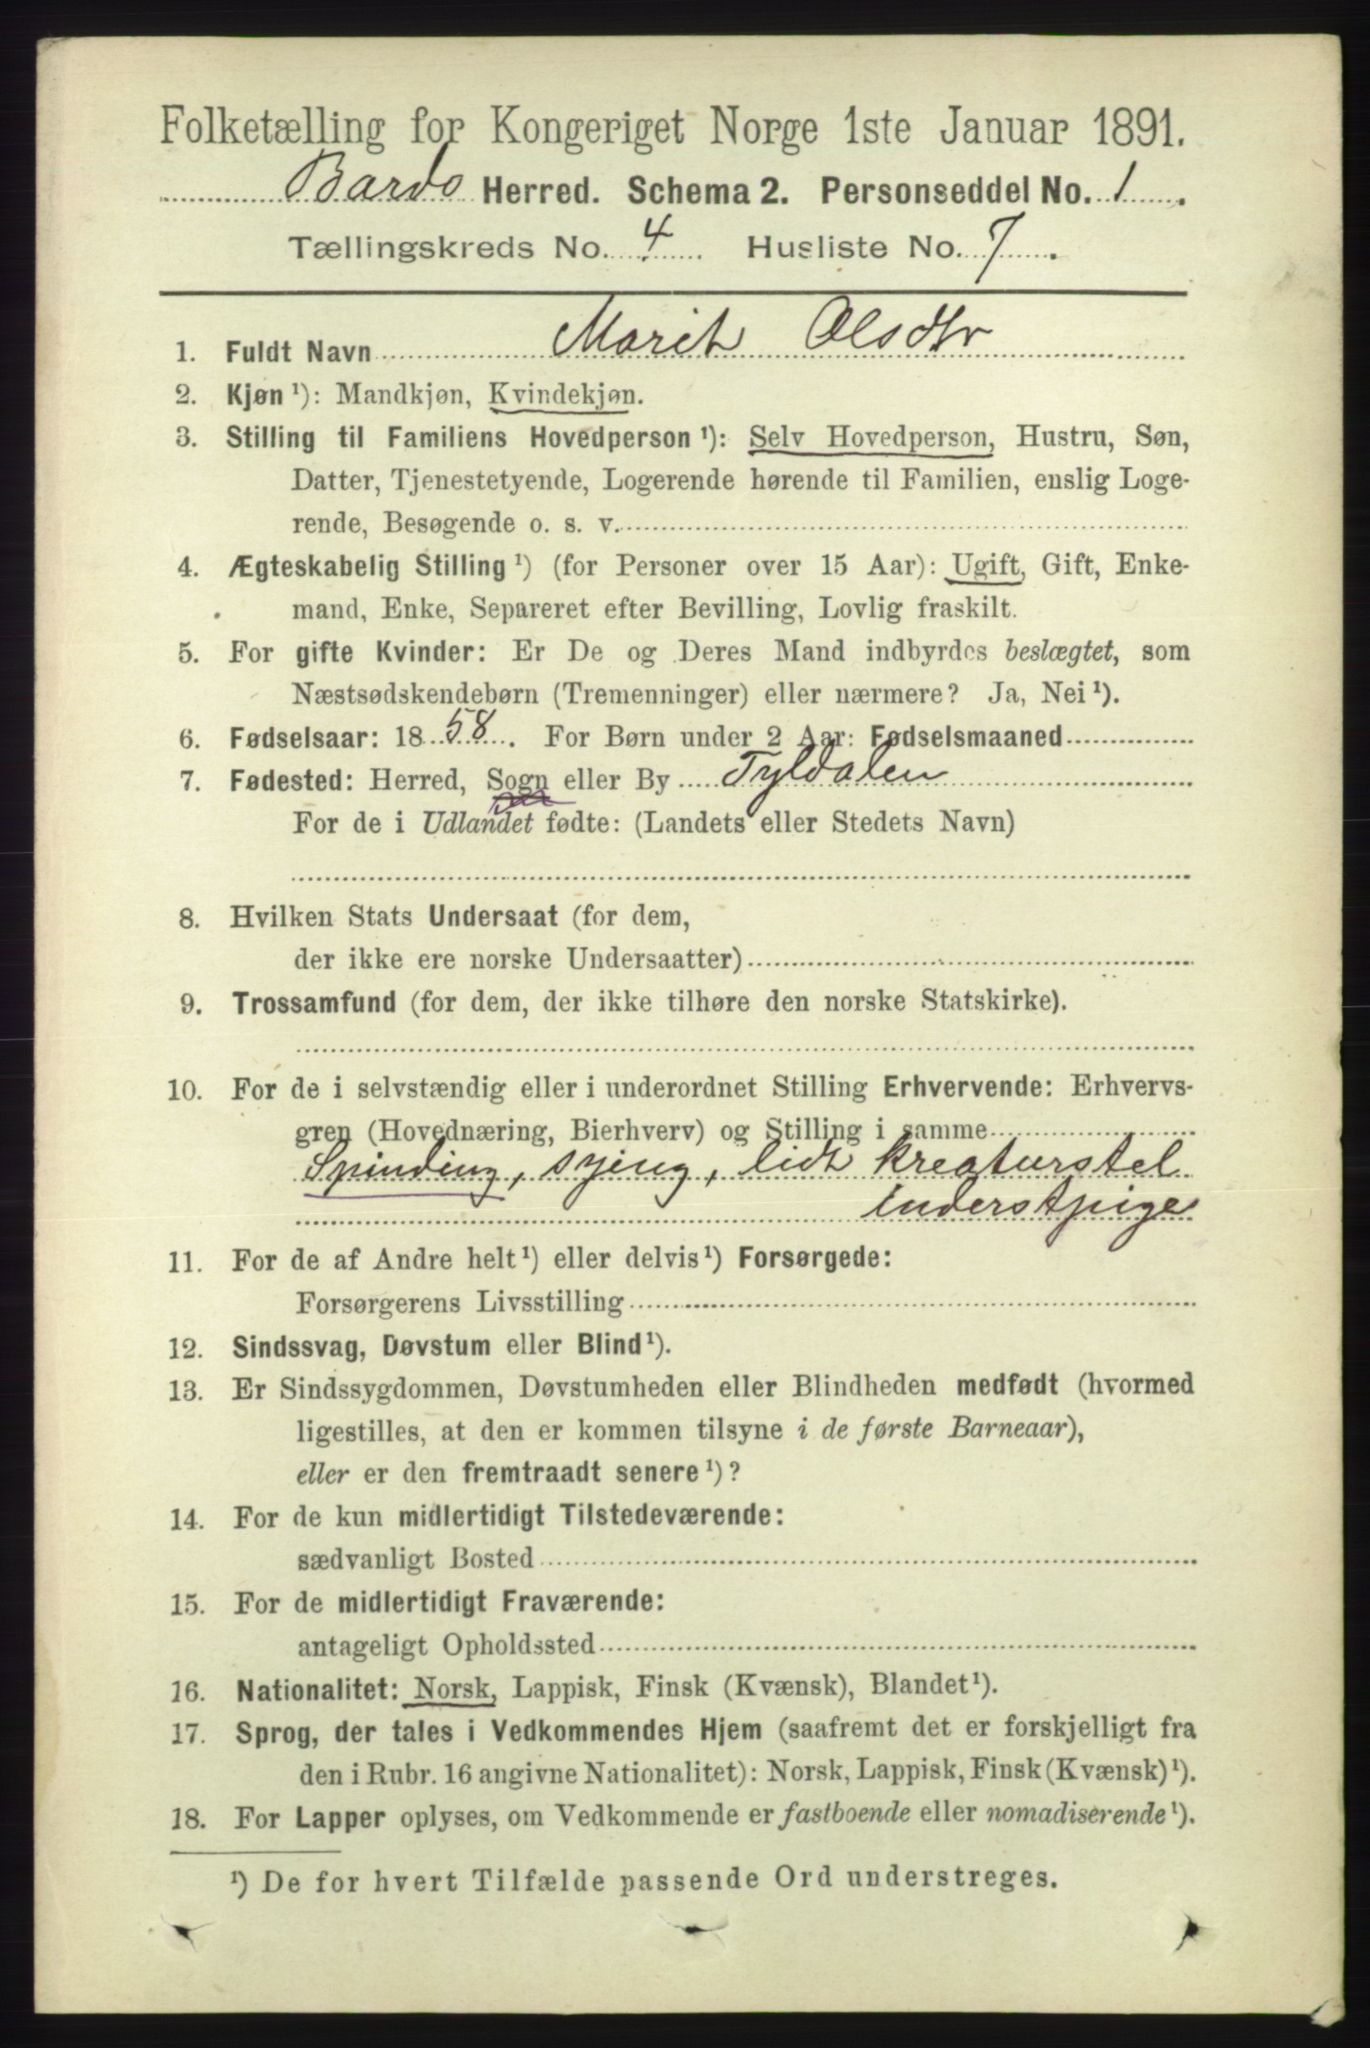 Folketælling for Kongeriget Norge 1ste Januar 1891.
Bardo Herred. Schema 2. Personseddel No. 1.
Tællingskreds No. 4. Husliste No. 7.
1. Fuldt Navn Marit Olsdtr
2. Kjøn ¹): Mandkjøn, Kvindekjøn.
3. Stilling til Familiens Hovedperson ¹): Selv Hovedperson, Hustru, Søn,
Datter, Tjenestetyende, Logerende hørende til Familien, enslig Loge-
rende, Besøgende o. s. v.
4. Ægteskabelig Stilling ¹) (for Personer over 15 Aar): Ugift, Gift, Enke-
mand, Enke, Separeret efter Bevilling, Lovlig fraskilt.
5. For gifte Kvinder: Er De og Deres Mand indbyrdes beslægtet, som
Næstsødskendebørn (Tremenninger) eller nærmere? Ja, Nei ¹).
6. Fødselsaar: 1858. For Børn under 2 Aar: Fødselsmaaned
7. Fødested: Herred, Sogn eller By Tyldalen
For de i Udlandet fødte: (Landets eller Stedets Navn)
8. Hvilken Stats Undersaat (for dem,
der ikke ere norske Undersaatter)
9. Trossamfund (for dem, der ikke tilhøre den norske Statskirke).
10. For de i selvstændig eller i underordnet Stilling Erhvervende: Erhvervs-
gren (Hovednæring, Bierhverv) og Stilling i samme
Spinding, syeing, lidt kreaturstel
inderstpige
11. For de af Andre helt ¹) eller delvis ¹) Forsørgede:
Forsørgerens Livsstilling
12. Sindssvag, Døvstum eller Blind ¹).
13. Er Sindssygdommen, Døvstumheden eller Blindheden medfødt (hvormed
ligestilles, at den er kommen tilsyne i de første Barneaar),
eller er den fremtraadt senere ¹)?
14. For de kun midlertidigt Tilstedeværende:
sædvanligt Bosted
15. For de midlertidigt Fraværende:
antageligt Opholdssted
16. Nationalitet: Norsk, Lappisk, Finsk (Kvænsk), Blandet ¹).
17. Sprog, der tales i Vedkommendes Hjem (saafremt det er forskjelligt fra
den i Rubr. 16 angivne Nationalitet): Norsk, Lappisk, Finsk (Kvænsk) ¹).
18. For Lapper oplyses, om Vedkommende er fastboende eller nomadiserende ¹).
¹) De for hvert Tilfælde passende Ord understreges.